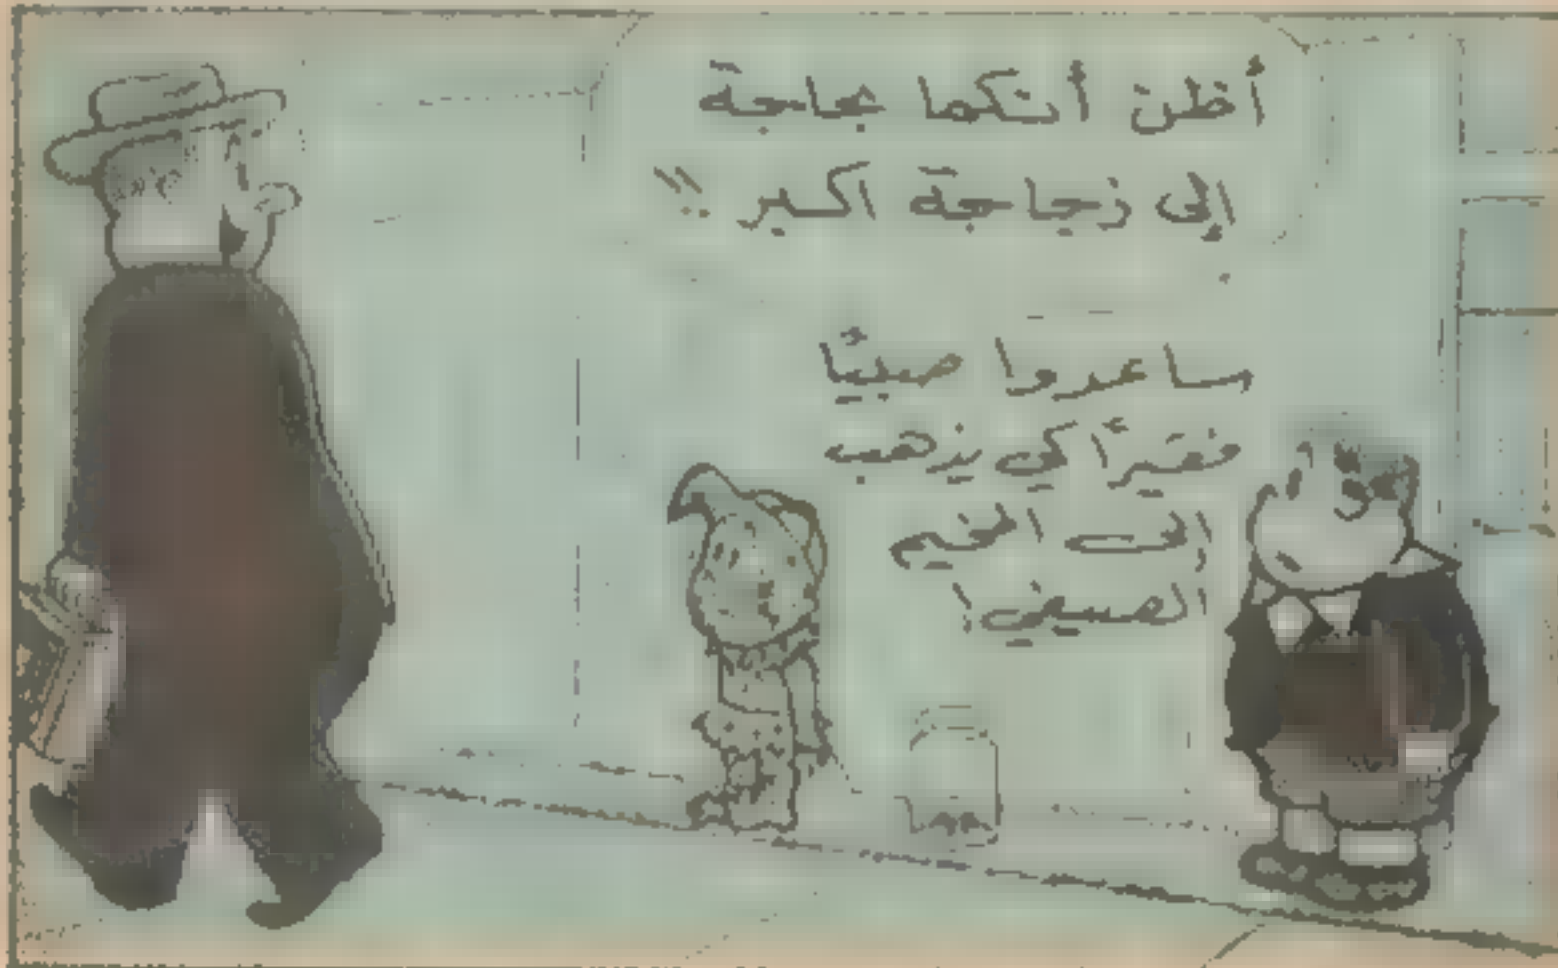 أظن أنكما بحاجة
إلى زجاجة اكبر !!
ساعدوا صبيًا
فقيرًا كي يذهب
إلى المخيم
الصيفي !